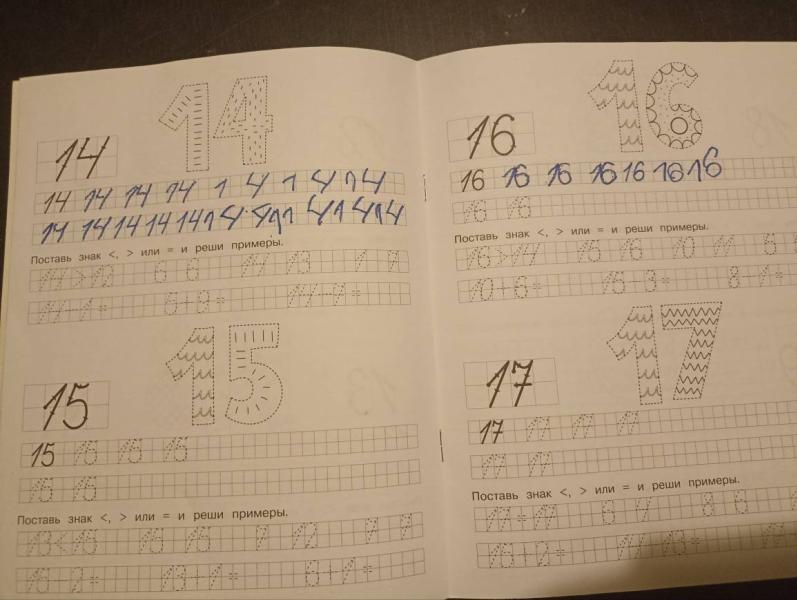 14
14
14 14 14 14 1 4 1 4 14
14 14 14 14 14 1 4 4 1 1 4 1 4 1 4
Поставь знак <, > или = и реши примеры.
14 > 12 6 6 14 13 1 7
15
15
15 15 15 15
15 15
Поставь знак <, > или = и реши примеры.
13 < 15 15 15 7 12 7 7
15 - 2 = 13 + 1 = 6 + 1 =
16
16
16 16 16 16 16 16 16
16 16
Поставь знак <, > или = и реши примеры.
16 > 14 15 16 10 11
10 + 6 = 15 - 3 = 8 - 1 =
17
17
17 17 17 17
17 17
Поставь знак <, > или = и реши примеры.
17 = 17 6 4 8 6
15 + 2 =